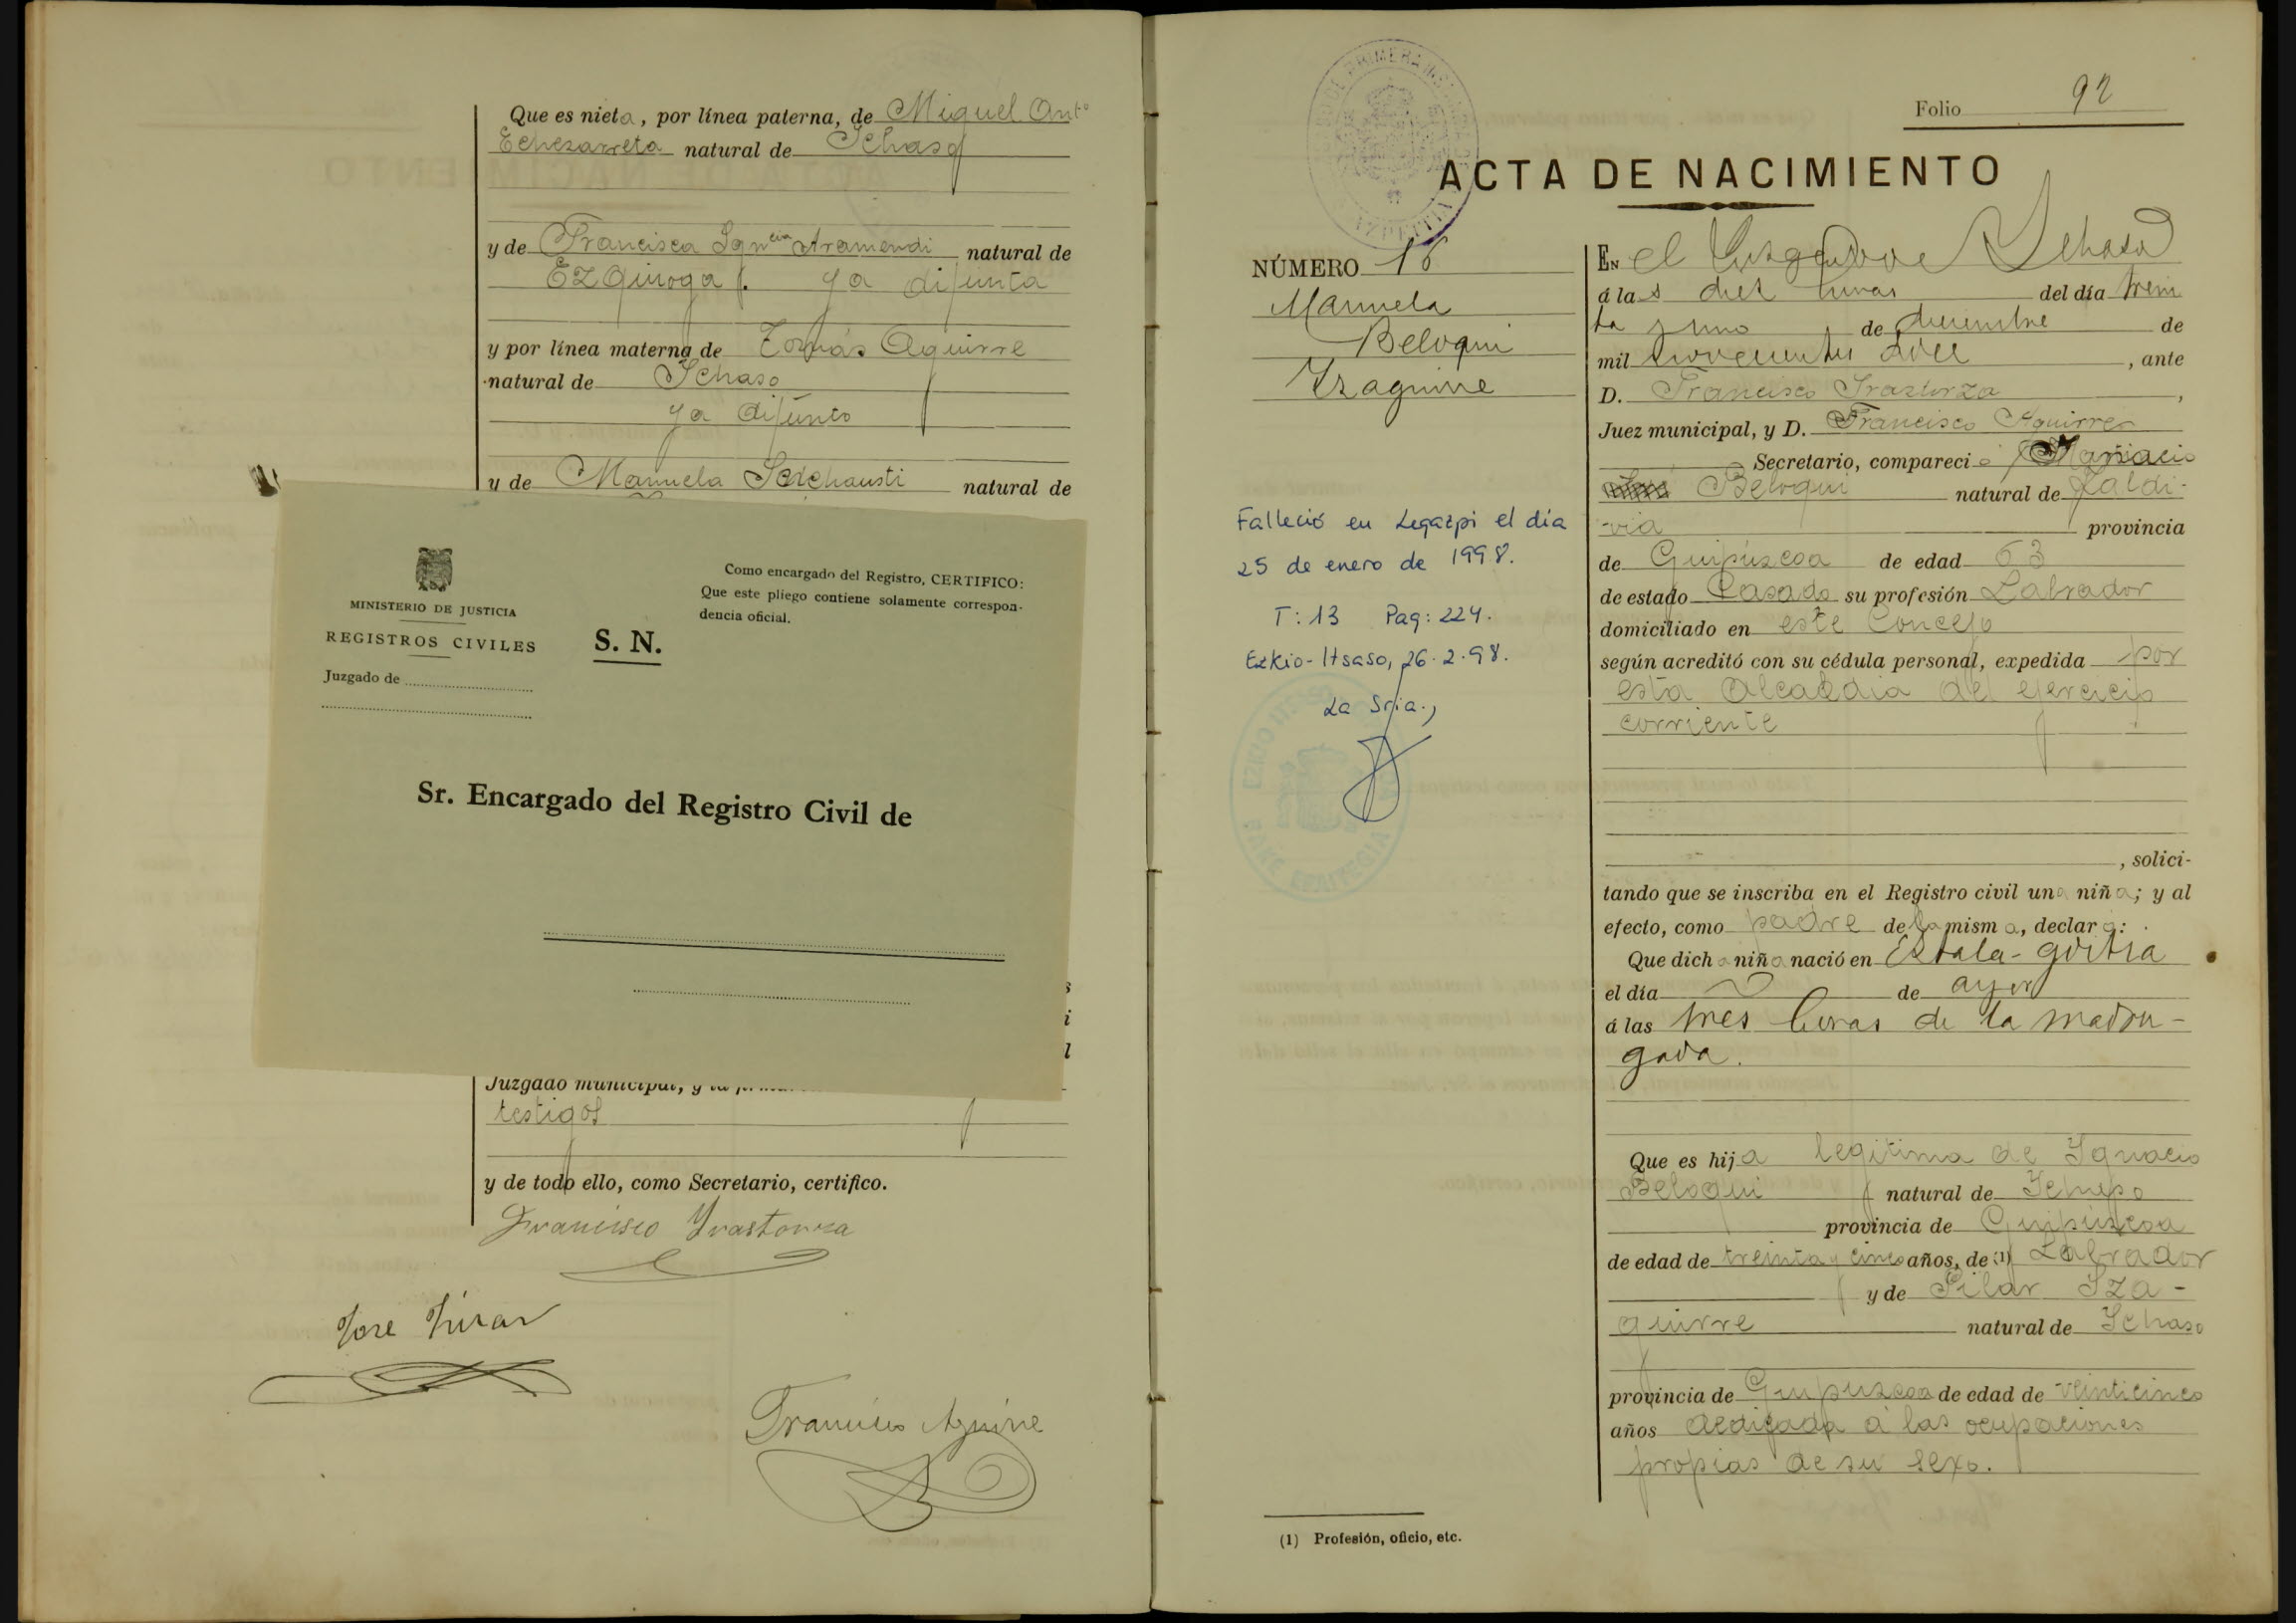 Que es nieta, por línea paterna, de Miguel Antº
Echezarreta natural de Ichaso
y de Francisca Igncia Aramendi natural de
Ezquioga ya difunta
y por línea materna de Tomás Aguirre
natural de Ichaso
ya difunto
y de Manuela natural de
MINISTERIO DE JUSTICIA
REGISTROS CIVILES
Juzgado de
S. N.
Como encargado del Registro, CERTIFICO:
Que este pliego contiene solamente correspon-
dencia oficial.
Sr. Encargado del Registro Civil de
Juzgado municipal, y la
testigos
y de todo ello, como Secretario, certifico.
Francisco Yrastorza
Jose
Francisco Aguirre
Folio 92
ACTA DE NACIMIENTO
NÚMERO 18
Manuela
Beloqui
Yzaguirre
Falleció en Legazpi el día
25 de enero de 1998.
T: 13 Pag: 224.
Ezkio-Itsaso, 26.2.98.
La Sria.,
EN el Juzgado de Ichaso
á las diez horas del día trein
ta y uno de diciembre de
mil novecientos doce, ante
D. Francisco Irastorza,
Juez municipal, y D. Francisco Aguirre
Secretario, compareció
Beloqui natural de Zaldi-
via provincia
de Guipúzcoa de edad 63
de estado Casado su profesión Labrador
domiciliado en este Concejo
según acreditó con su cédula personal, expedida por
esta Alcaldia del ejercicio
corriente
, solici-
tando que se inscriba en el Registro civil una niña; y al
efecto, como padre de la misma, declara:
Que dicha niña nació en
el día de ayer
á las tres horas de la madru-
gada.
Que es hija legitima de Ignacio
Beloqui natural de Ichaso
provincia de Guipúzcoa
de edad de treinta y cinco años, de (1) Labrador
y de Pilar Iza-
guirre natural de Ichaso
provincia de Guipuzcoa de edad de veinticinco
años dedicada á las ocupaciones
propias de su sexo.
(1) Profesión, oficio, etc.